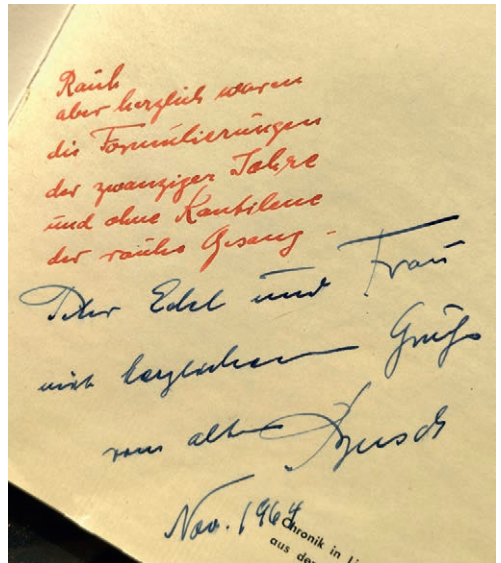 Rauh
aber herzlich waren
die Formulierungen
der zwanziger Jahre
und ohne Kantilene
der rauhe Gesang –
Peter Edel und Frau
mit herzlichem Gruß
vom alten Busch
Nov. 1964
Chronik in Li
aus de